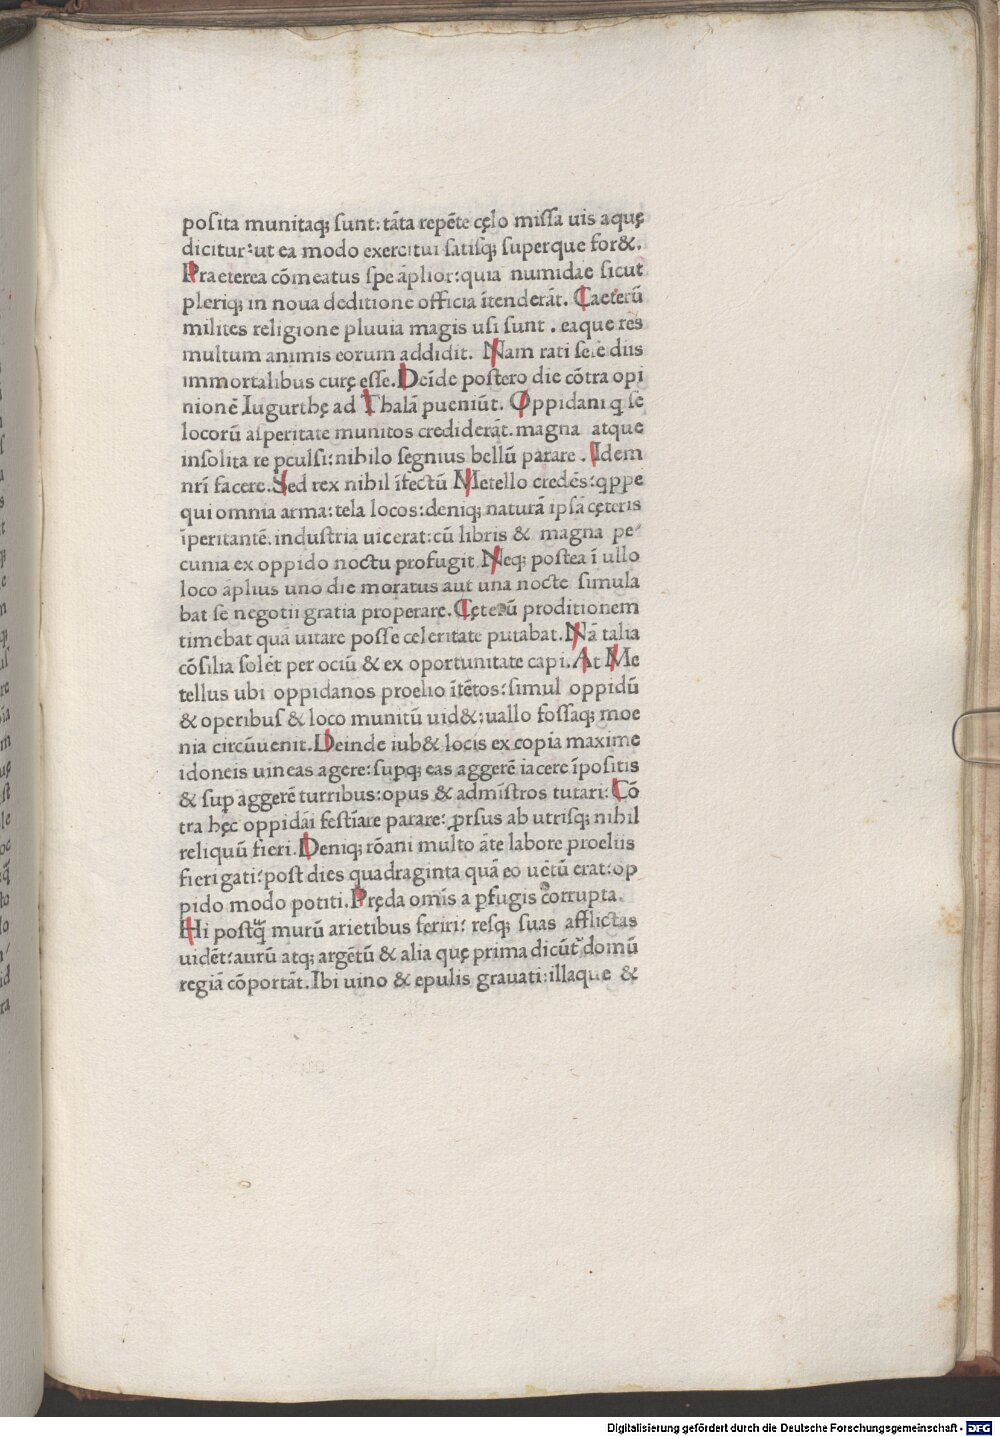 posita munitaq; sunt: tãta repẽte cęlo missa uis aquę
dicitur: ut ea modo exercitui satisq; superque for&.
Praeterea cõmeatus spe ãplior: quia numidae sicut
pleriq; in noua deditione officia ĩtenderãt. Caeterũ
milites religione pluuia magis usi sunt. eaque res
multum animis eorum addidit. Nam rati sese diis
immortalibus curę esse. Deĩde postero die cõtra opi
nionẽ Iugurthę ad Thalã pueniũt. Oppidani q se
locorũ asperitate munitos crediderãt. magna atque
insolita re pculsi: nihilo segnius bellũ parare. Idem
nrĩ facere. Sed rex nihil ĩfectũ Metello credẽs: qppe
qui omnia arma: tela locos: deniq; naturã ipsã cęteris
ĩperitantẽ. industria uicerat: cũ libris & magna pe
cunia ex oppido noctu profugit. Neq; postea ĩ ullo
loco ãplius uno die moratus aut una nocte simula
bat se negotii gratia properare. Cęterũ proditionem
timebat quã uitare posse celeritate putabat. Nã talia
cõsilia solẽt per ociũ & ex oportunitate capi. At Me
tellus ubi oppidanos proelio ĩtẽtos: simul oppidũ
& operibus & loco munitũ uid&: uallo fossaq; moe
nia circũuenit. Deinde iub& locis ex copia maxime
idoneis uineas agere: supq; eas aggerẽ iacere ĩpositis
& sup aggerẽ turribus: opus & admĩstros tutari: Cõ
tra hęc oppidãi festĩare parare: prsus ab utrisq; nihil
reliquũ fieri. Deniq; rõani multo ãte labore proeliis
fieri gati: post dies quadraginta quã eo uẽtũ erat: op
pido modo potiti. Pręda omĩs a pfugis corrupta.
Hi postq̃ murũ arietibus feriri: resq; suas afflictas
uidẽt: aurũ atq; argẽtũ & alia quę prima dicũt domũ
regiã cõportãt. Ibi uino & epulis grauati: illaque &
Digitalisierung gefördert durch die Deutsche Forschungsgemeinschaft - DFG